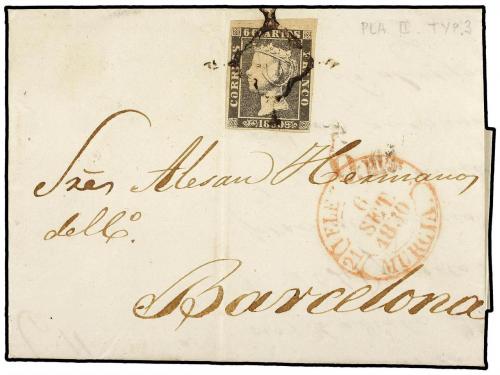 PLA. II. TYP. 3
6 CUARTOS
CORREOS
FRANCO
1850
Sres Alesan Hermanos
del Co.
6
SET
1850
MURCIA
Barcelona